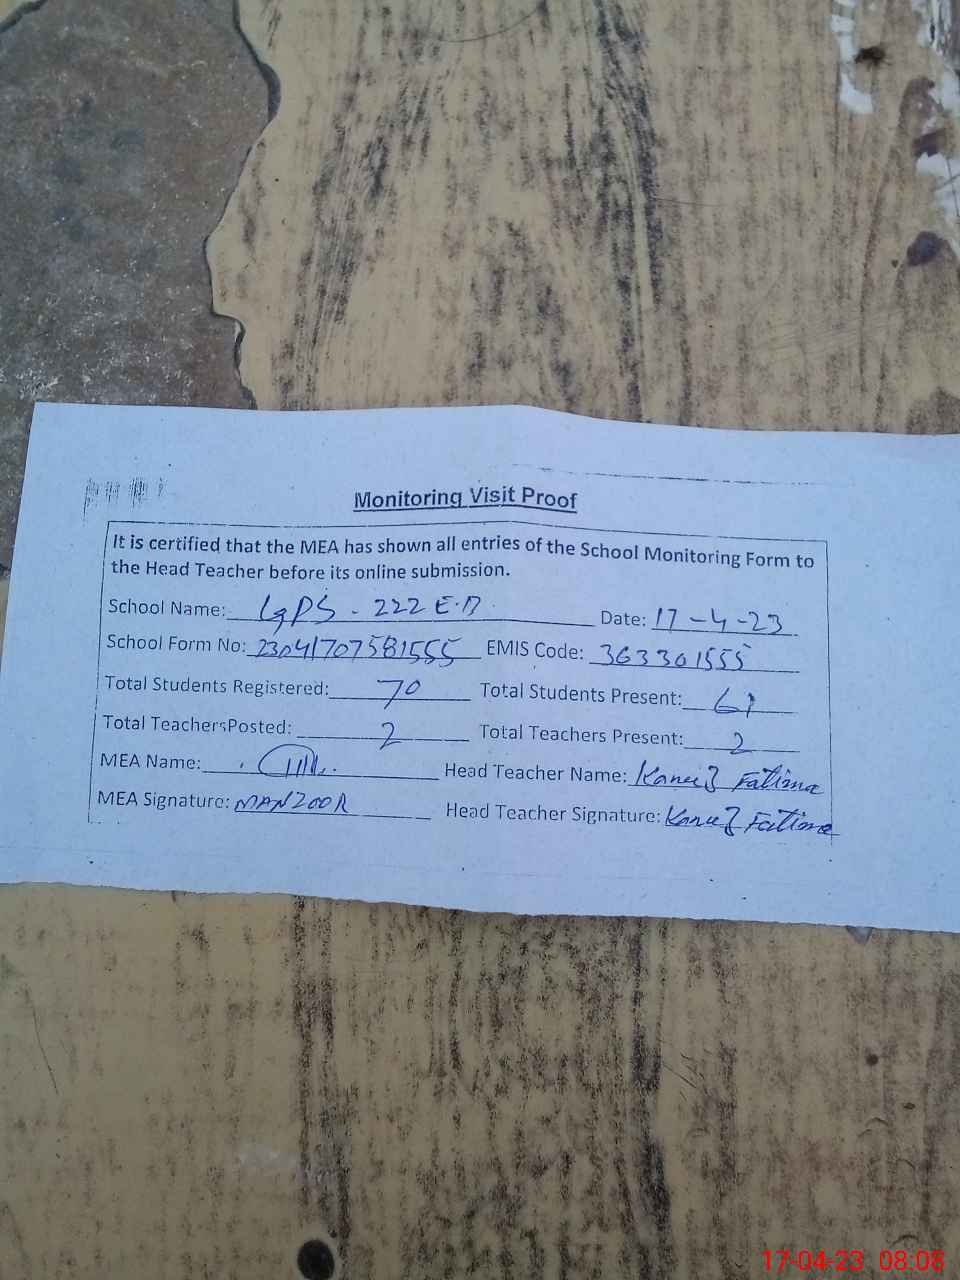 Monitoring Visit Proof
It is certified that the MEA has shown all entries of the School Monitoring Form to
the Head Teacher before its online submission.
School Name: GPS - 222 E.B. Date: 17-4-23
School Form No: 23041707581555 EMIS Code: 363301555
Total Students Registered: 70 Total Students Present: 61
Total TeachersPosted: 2 Total Teachers Present: 2
MEA Name: Head Teacher Name: Kaneez Fatima
MEA Signature: MANZOOR Head Teacher Signature: Kaneez Fatima
17-04-23 08:08